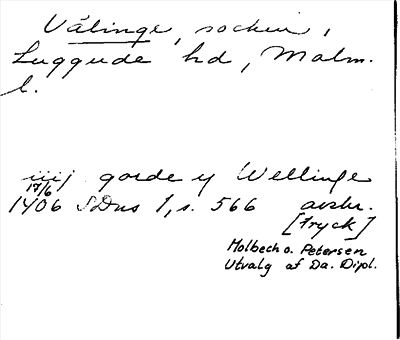 Välinge, socken,
Luggude hd, Malm.
l.
iiij gorde y Wellinge
17/6
1406 SDns 1, s. 566 avskr.
[tryck]
Molbech o. Petersen
Utvalg af Da. Dipl.